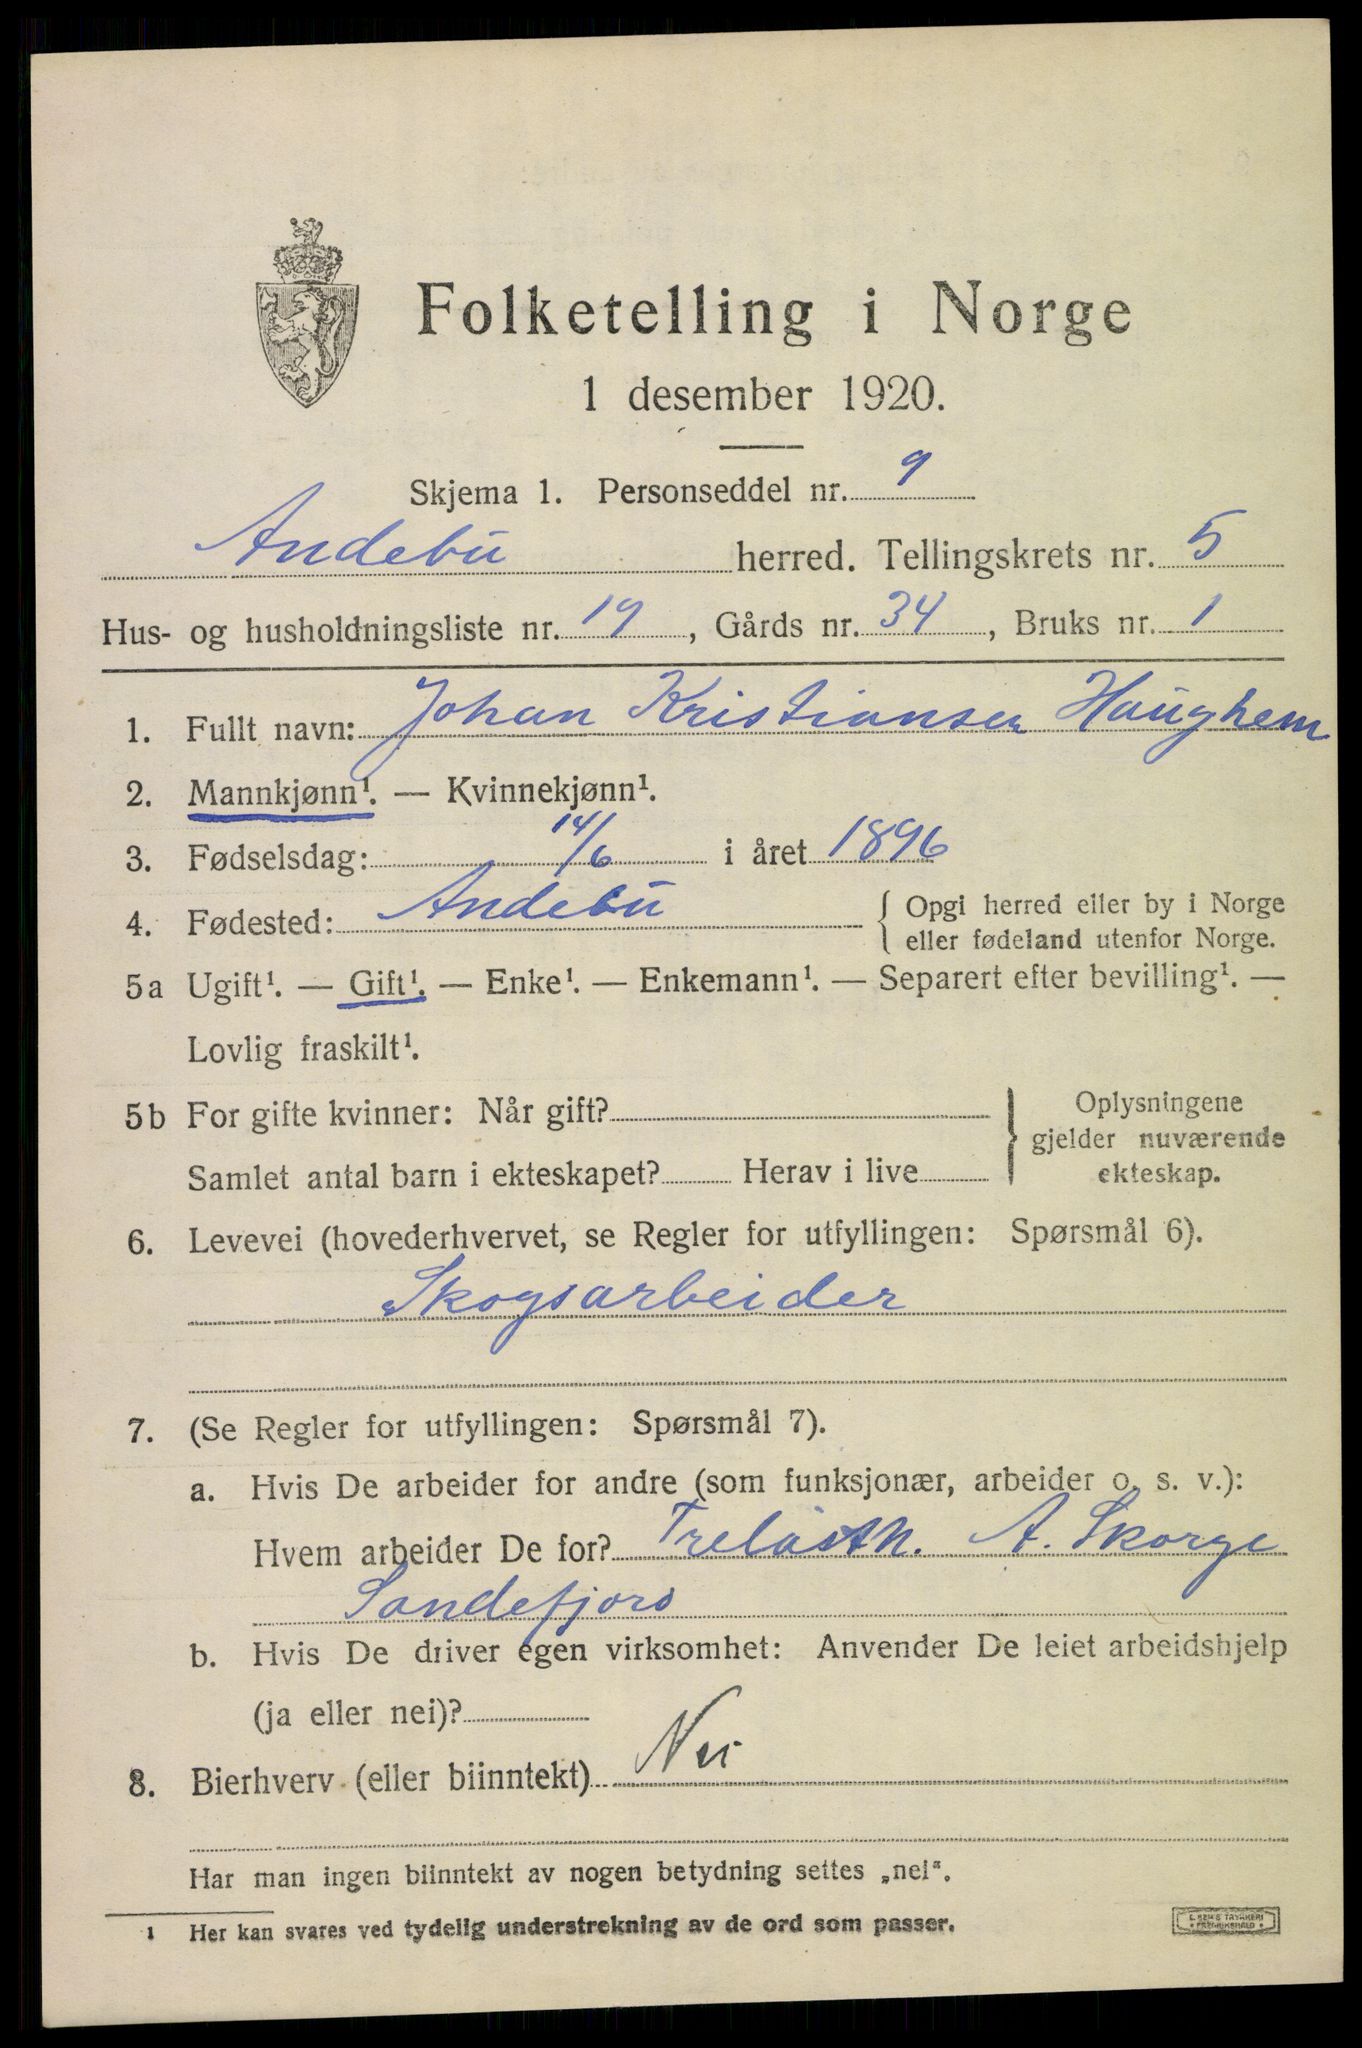 Folketelling i Norge
1 desember 1920.
Skjema 1. Personseddel nr. 9
Andebu herred. Tellingskrets nr. 5
Hus- og husholdningsliste nr. 19, Gårds nr. 34, Bruks nr. 1
1. Fullt navn: Johan Kristiansen Haughem
2. Mannkjønn¹. — Kvinnekjønn¹.
3. Fødselsdag: 14/6 i året 1896
4. Fødested: Andebu { Opgi herred eller by i Norge
eller fødeland utenfor Norge.
5a Ugift¹. — Gift¹. — Enke¹. — Enkemann¹. — Separert efter bevilling¹. —
Lovlig fraskilt¹.
5b For gifte kvinner: Når gift? } Oplysningene
gjelder nuværende
Samlet antal barn i ekteskapet? Herav i live ekteskap.
6. Levevei (hovederhvervet, se Regler for utfyllingen: Spørsmål 6).
Skogsarbeider
7. (Se Regler for utfyllingen: Spørsmål 7).
a. Hvis De arbeider for andre (som funksjonær, arbeider o. s. v.):
Hvem arbeider De for? Trelasth. A. Skorge
Sandefjord
b. Hvis De driver egen virksomhet: Anvender De leiet arbeidshjelp
(ja eller nei)?
8. Bierhverv (eller biinntekt) Nei
Har man ingen biinntekt av nogen betydning settes „nei“.
1 Her kan svares ved tydelig understrekning av de ord som passer.